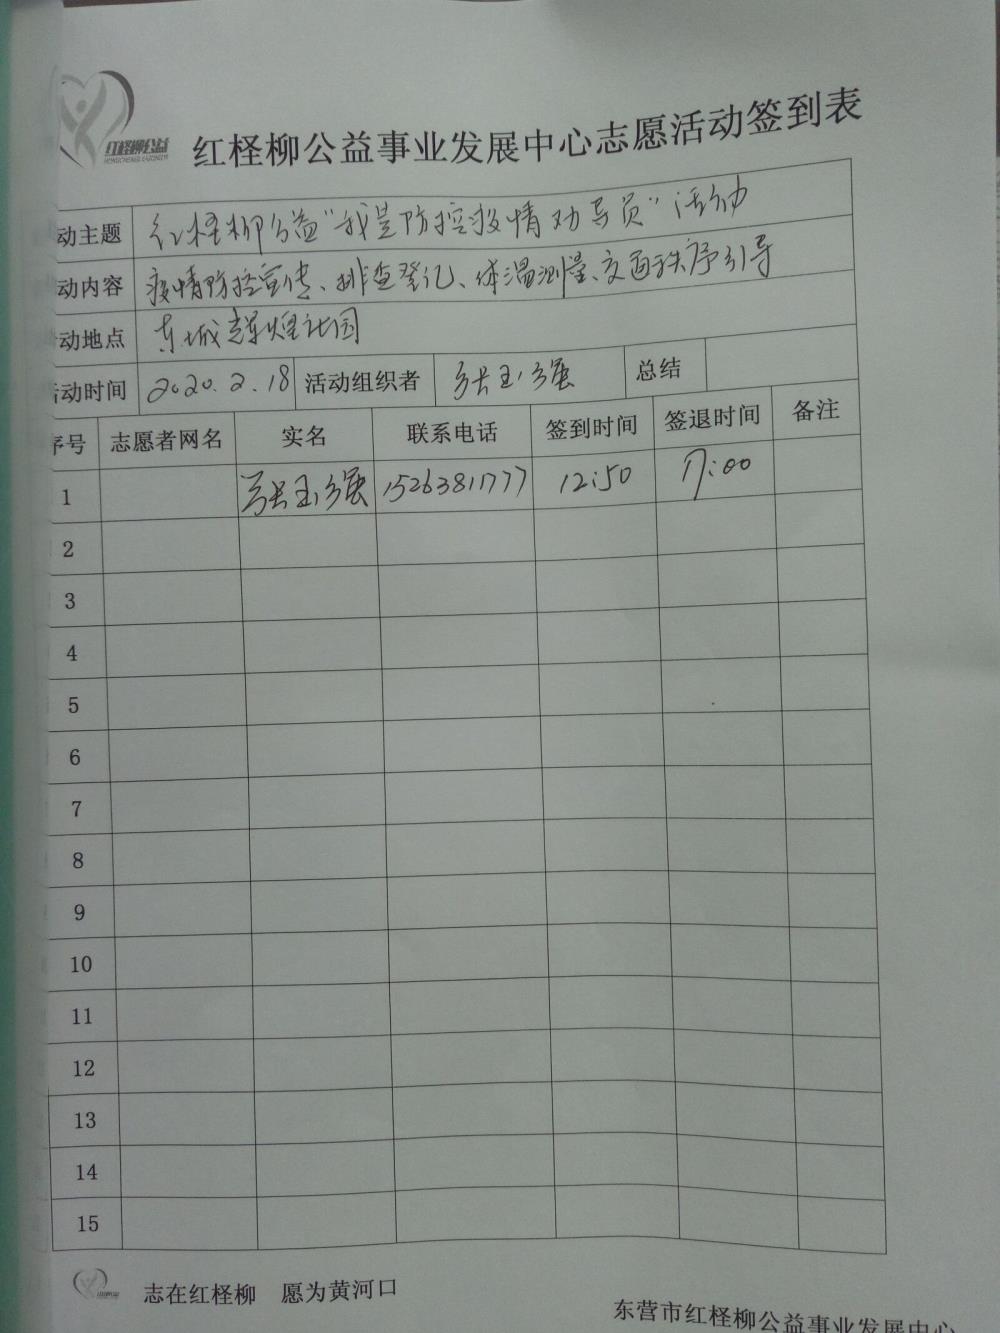 红柽柳公益
红柽柳公益事业发展中心志愿活动签到表
动主题 红柽柳公益“我是防控疫情劝导员”活动
动内容 疫情防控宣传、排查登记、体温测量、交通秩序引导
动地点 东城辉煌社园
活动时间 2020.2.18 活动组织者 张玉强 总结
序号 志愿者网名 实名 联系电话 签到时间 签退时间 备注
1 张玉强 15263811777 12:50 17:00
2
3
4
5
6
7
8
9
10
11
12
13
14
15
志在红柽柳 愿为黄河口
东营市红柽柳公益事业发展中心